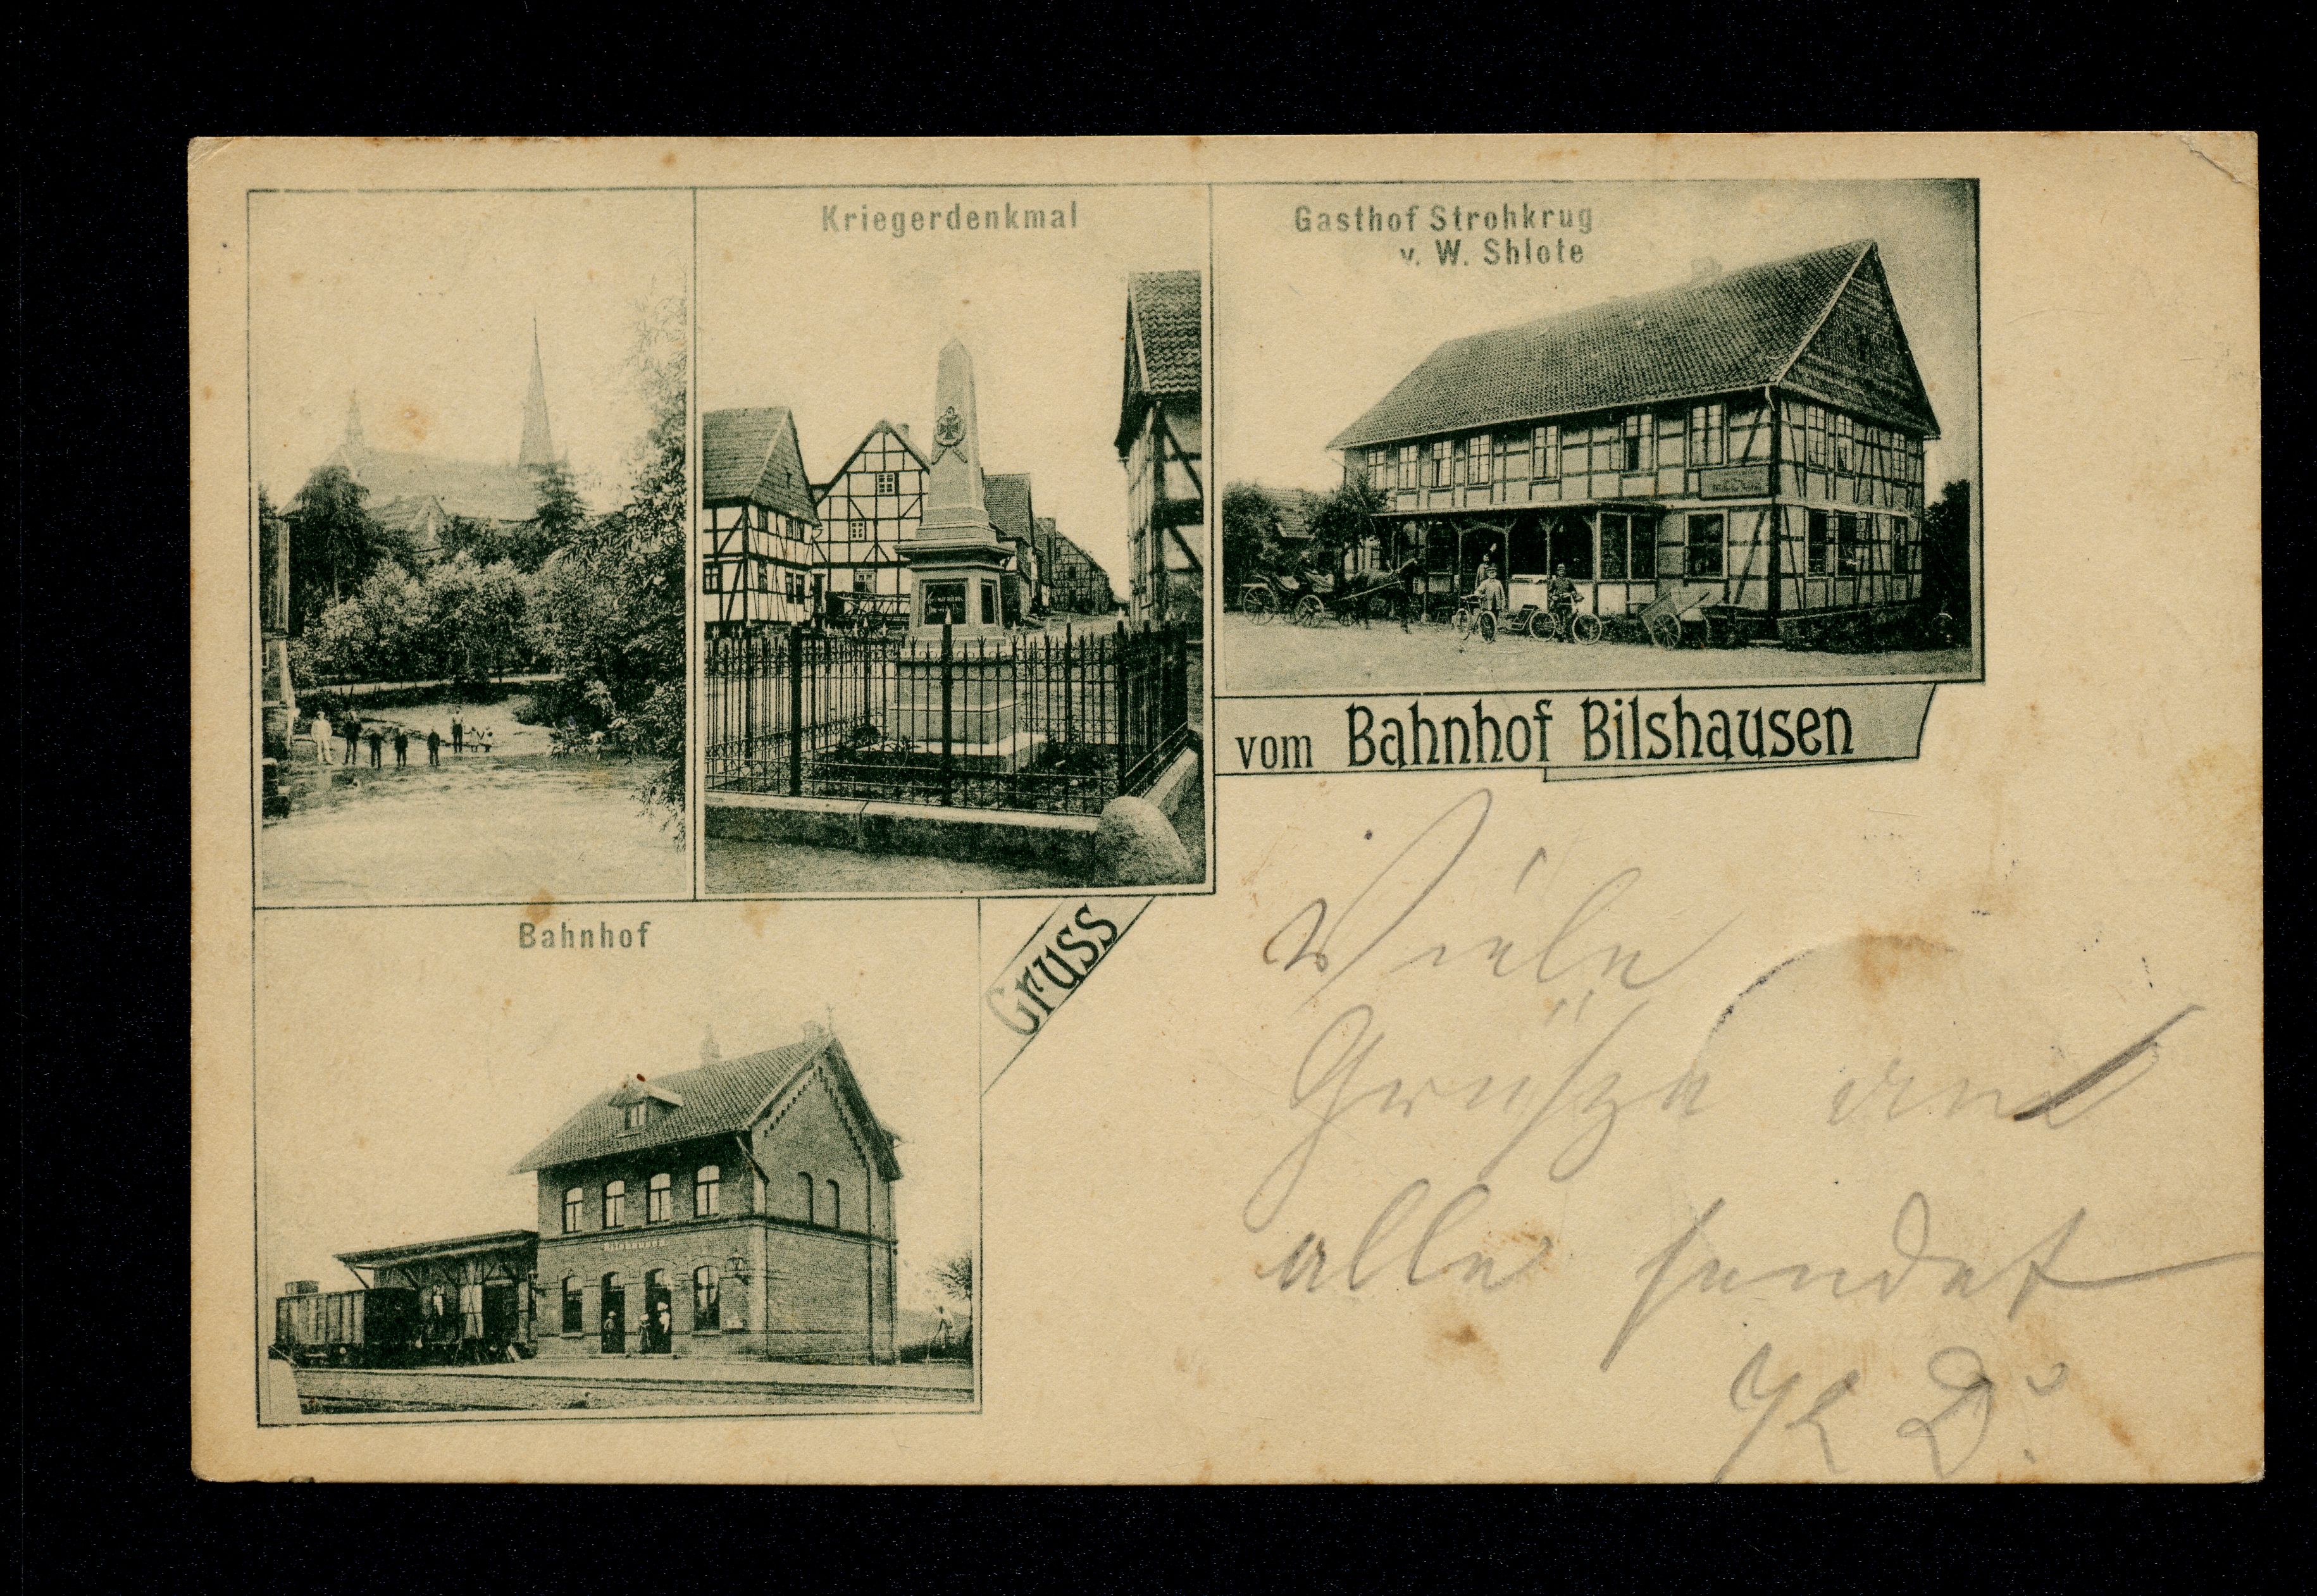 Kriegerdenkmal
Gasthof Strohkrug
v. W. Shlote
Gruss
vom Bahnhof Bilshausen
Bahnhof
Bilshausen
Viele
Grüße an
alle sendet